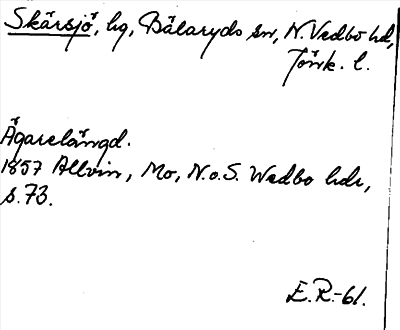 Skärsjö, hg, Bälaryds sn, N. Vedbo hd,
Jönk. l.
Ägarelängd.
1857 Allvin, Mo, N. o. S. Wedbo hdr,
s. 73.
E. R. -61.